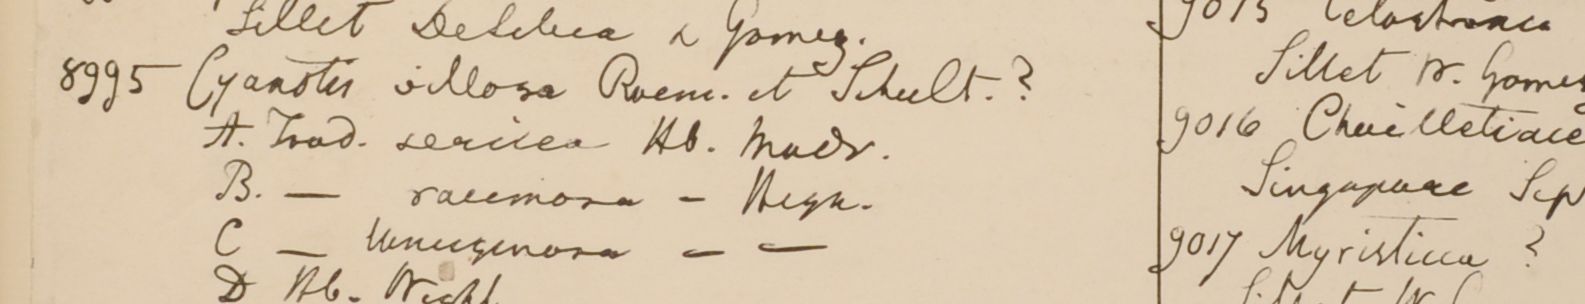 Sillet DeSilva & Gomez.
8995 Cyanotis villosa Roem. et Schult. ?
A. Trad. sericea Hb. Madr.
B. — racemosa – Heyn.
C — lanuginosa – —
D Hb. Wight
9015
Sillet W. Gomez
9016 Chailletiaceae
Singapore Sep
9017 Myristica ?